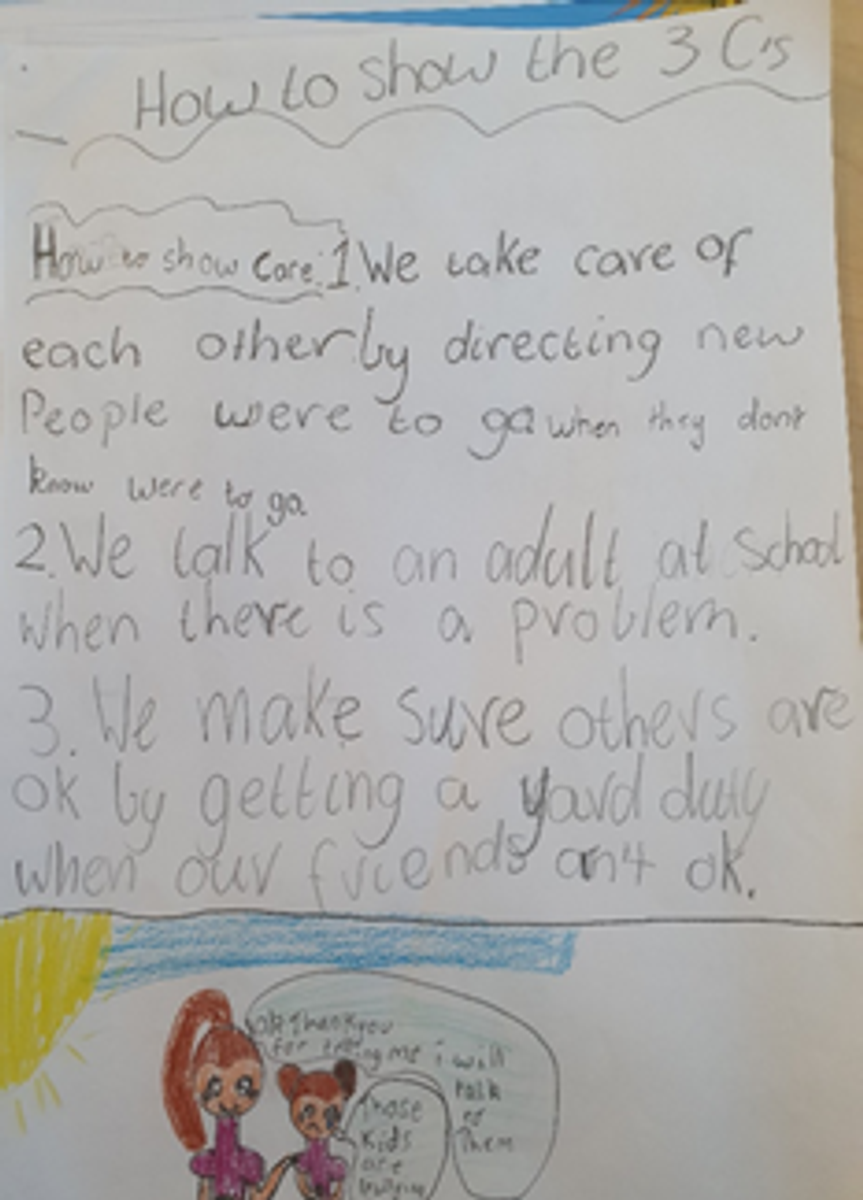 How to show the 3 C's
How to show care: 1. We take care of
each other by directing new
People were to go when they dont
know were to go.
2. We talk to an adult at School
when there is a problem.
3. We make sure others are
ok by getting a yard duty
when our friends ant ok.
ok thankyou
for me i will
talk
to
Them
Those
kids
are